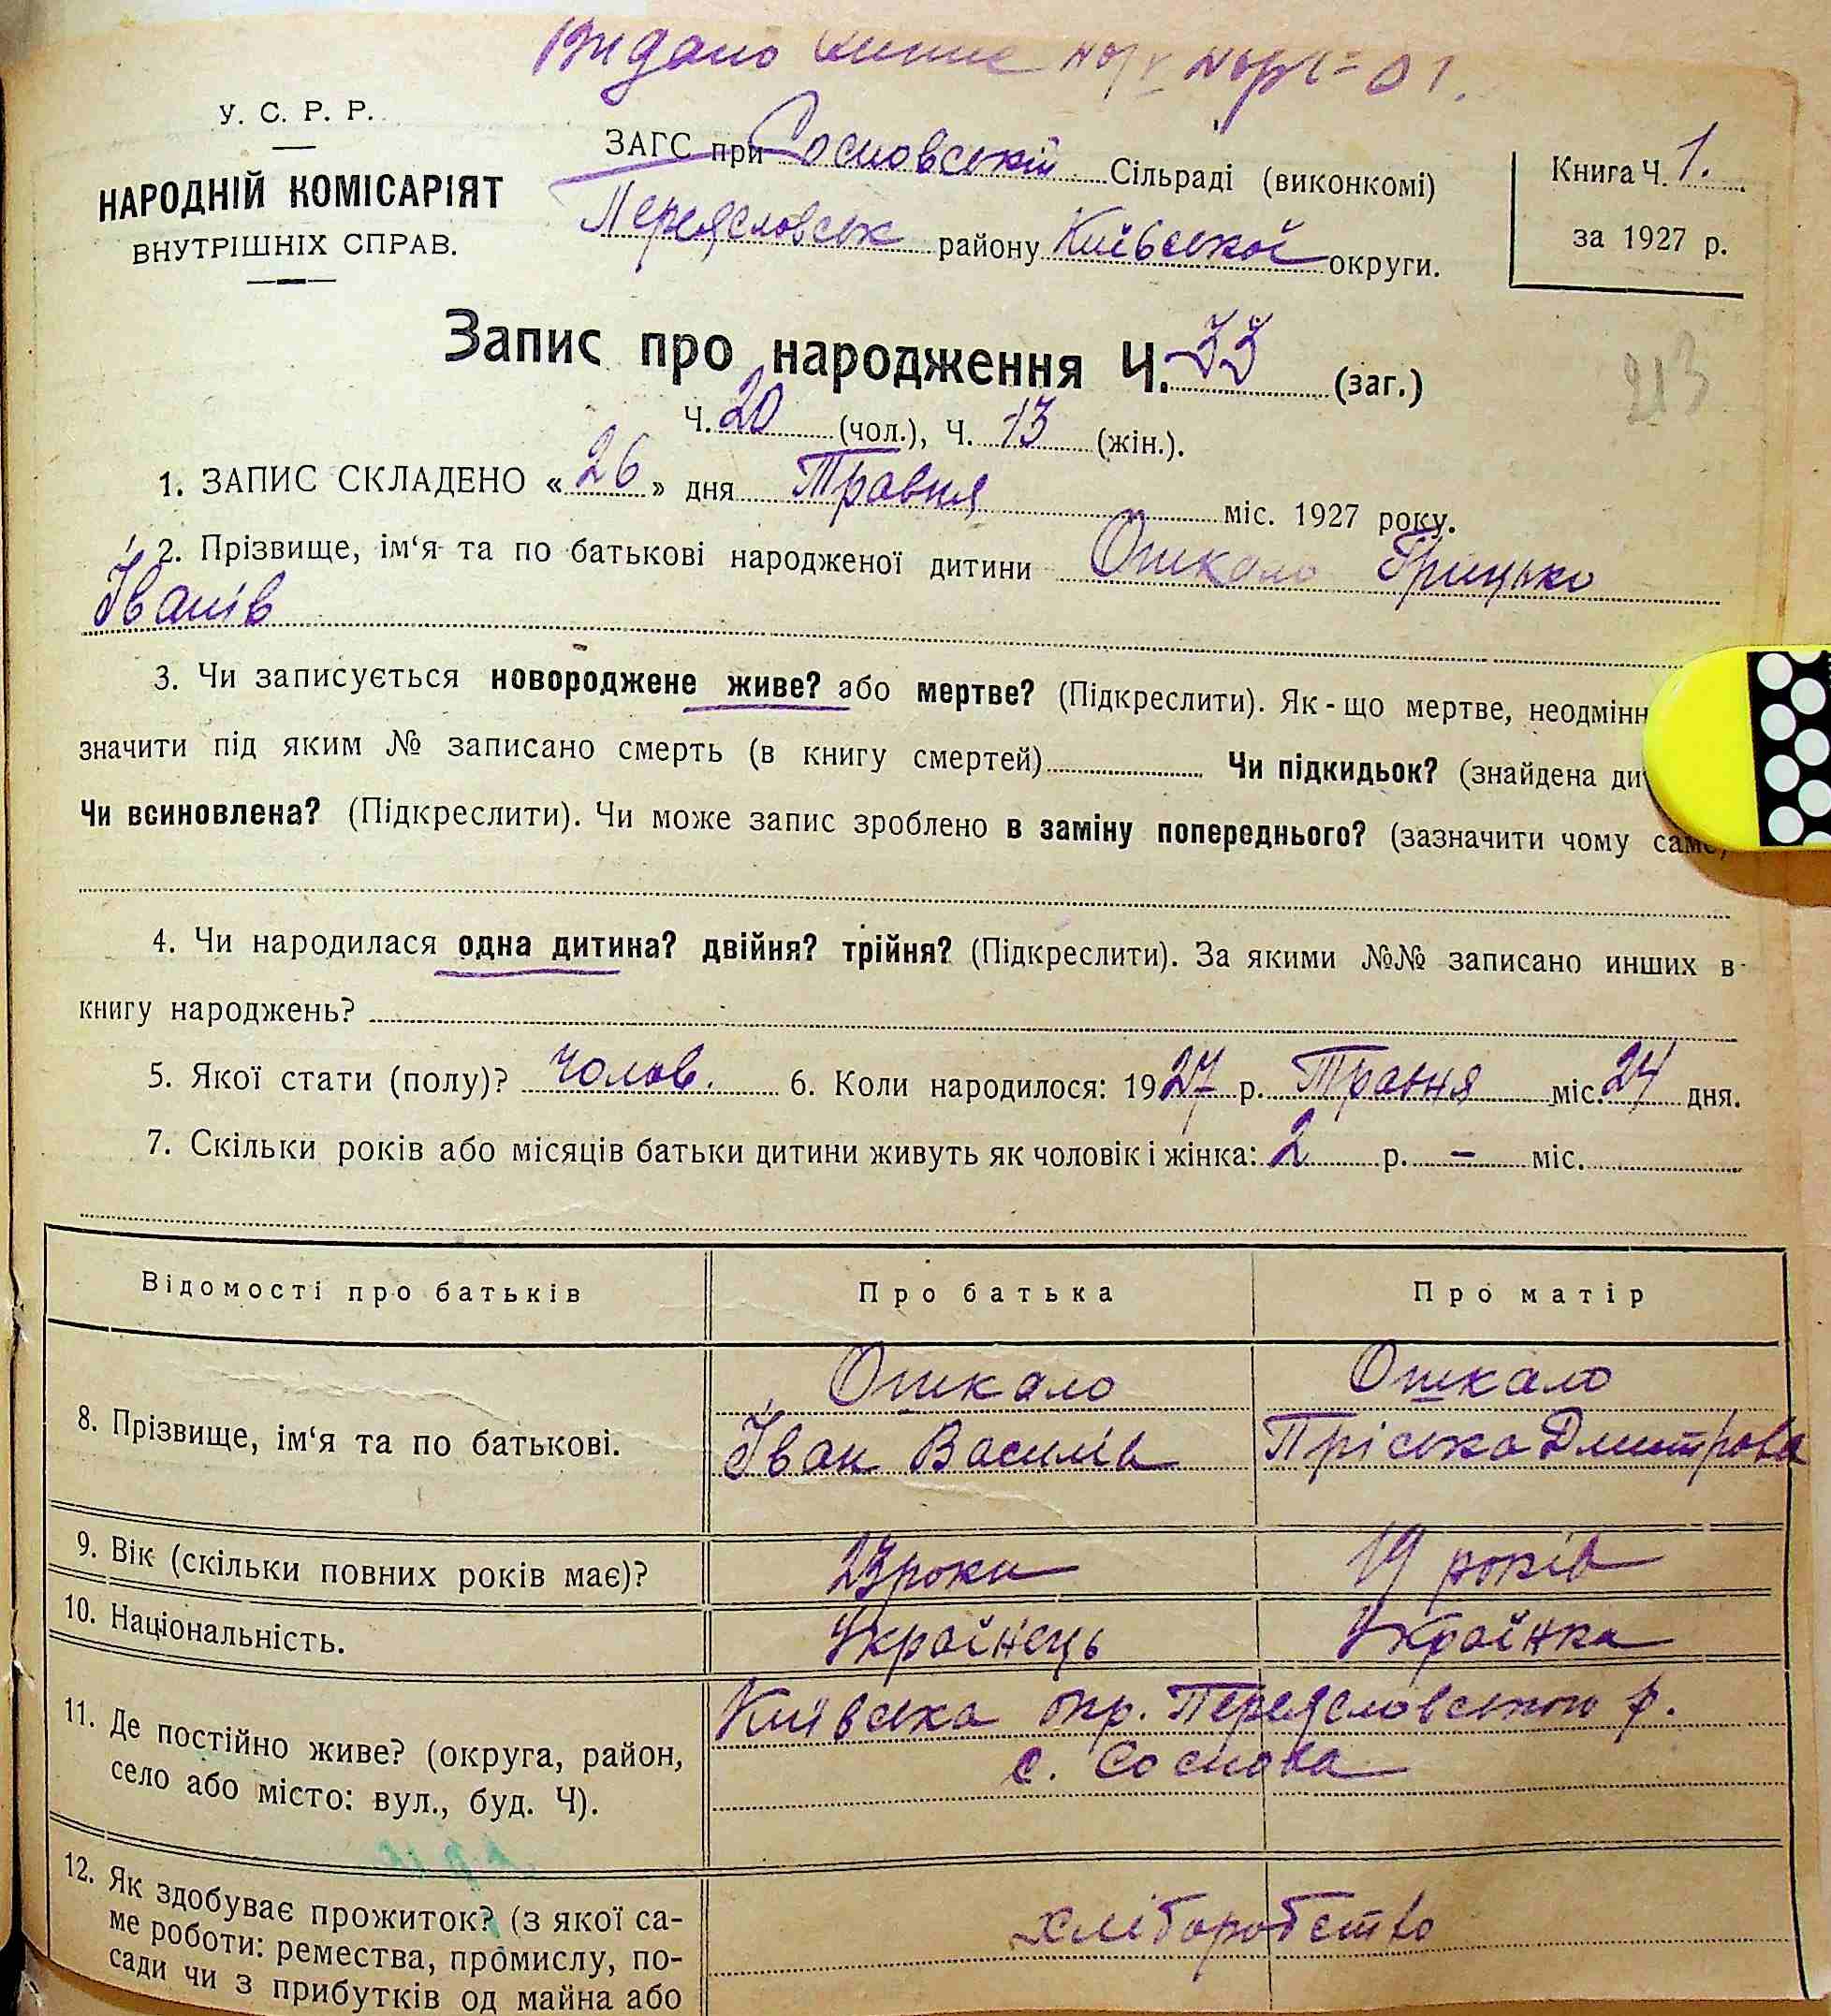 Видано
У. С. Р. Р.
НАРОДНІЙ КОМІСАРІЯТ
ВНУТРІШНІХ СПРАВ.
ЗАГС при Сосновській Сільраді (виконкомі)
Переясловськ району Київської округи.
Книга Ч. 1.
за 1927 р.
Запис про народження Ч. 33 (заг.)
213
Ч. 20 (чол.), Ч. 13 (жін.).
1. ЗАПИС СКЛАДЕНО « 26 » дня Травня міс. 1927 року.
2. Прізвище, ім‘я та по батькові народженої дитини Ошкало Грицько
Іванів
3. Чи записується новороджене живе? або мертве? (Підкреслити). Як-що мертве, неодмінн
значити під яким № записано смерть (в книгу смертей) Чи підкидьок? (знайдена ди
Чи всиновлена? (Підкреслити). Чи може запис зроблено в заміну попереднього? (зазначити чому саме)
4. Чи народилася одна дитина? двійня? трійня? (Підкреслити). За якими №№ записано инших в
книгу народжень?
5. Якої стати (полу)? Чолов. 6. Коли народилося: 1927 р. Травня міс. 24 дня.
7. Скільки років або місяців батьки дитини живуть як чоловік і жінка: 2 р. – міс.
Відомості про батьків Про батька Про матір
8. Прізвище, ім‘я та по батькові.
Ошкало
Іван Василів
Ошкало
Пріська Дмитрова
9. Вік (скільки повних років має)? 23 роки 19 років
10. Національність. Українець Українка
11. Де постійно живе? (округа, район,
село або місто: вул., буд. Ч).
Київська окр. Переясловського р.
с. Соснова
12. Як здобуває прожиток? (з якої са-
ме роботи: ремества, промислу, по-
сади чи з прибутків од майна або
хліборобство